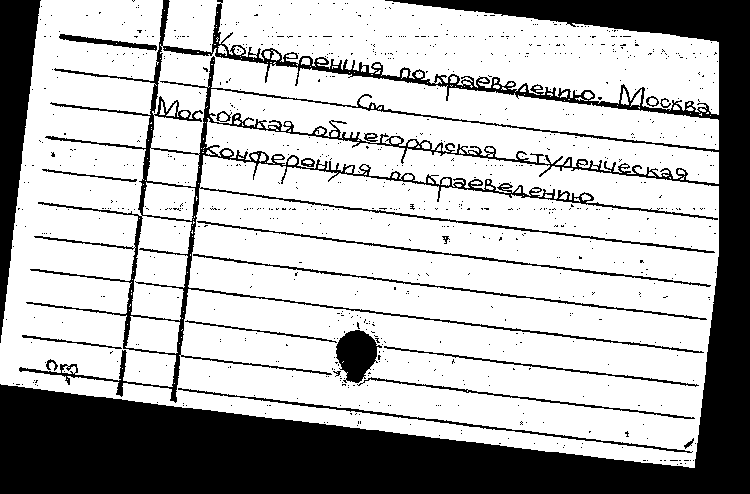 Конференция по краеведению. Москва
См.
Московская общегородская студенческая
конференция по краеведению